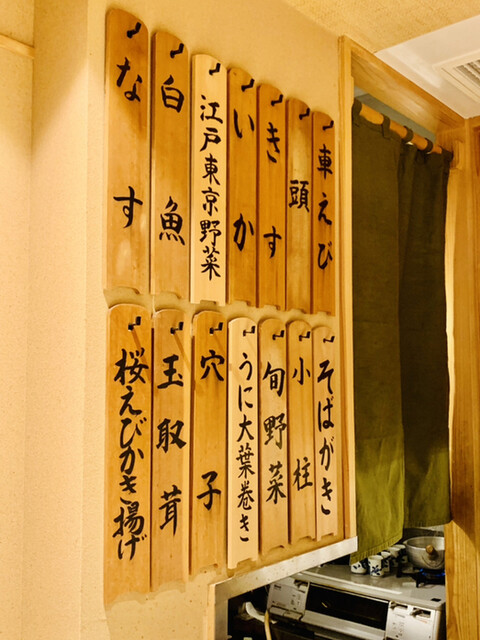 車えび
頭
きす
いか
江戸東京野菜
白魚
なす
そばがき
小柱
旬野菜
うに大葉巻き
穴子
玉取茸
桜えびかき揚げ